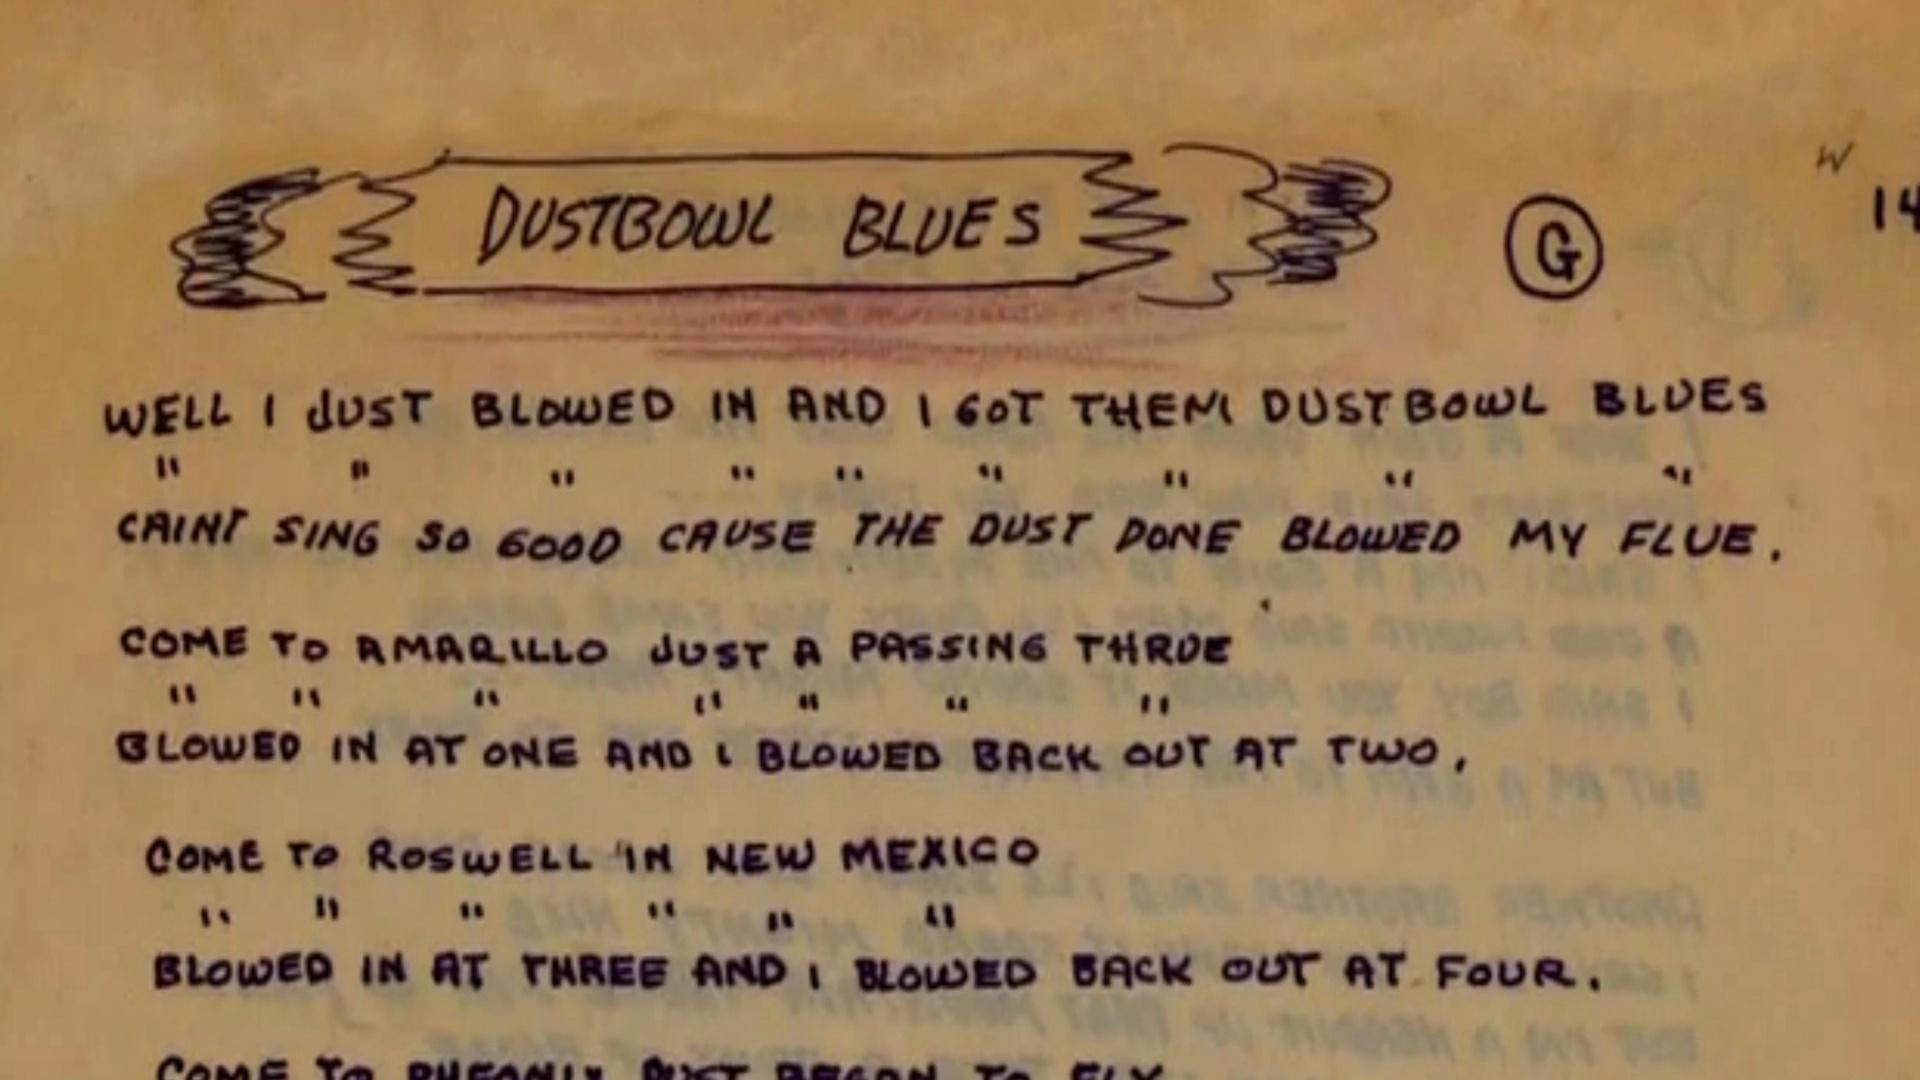 W
14
DUSTBOWL BLUES G
WELL I JUST BLOWED IN AND I GOT THEM DUSTBOWL BLUES
" " " " " " " " "
CAINT SING SO GOOD CAUSE THE DUST DONE BLOWED MY FLUE.
COME TO AMARILLO JUST A PASSING THRUE
" " " " " " "
BLOWED IN AT ONE AND I BLOWED BACK OUT AT TWO.
COME TO ROSWELL IN NEW MEXICO
" " " " " "
BLOWED IN AT THREE AND I BLOWED BACK OUT AT FOUR.
COME TO PHEONIX DUST BEGAN TO FLY